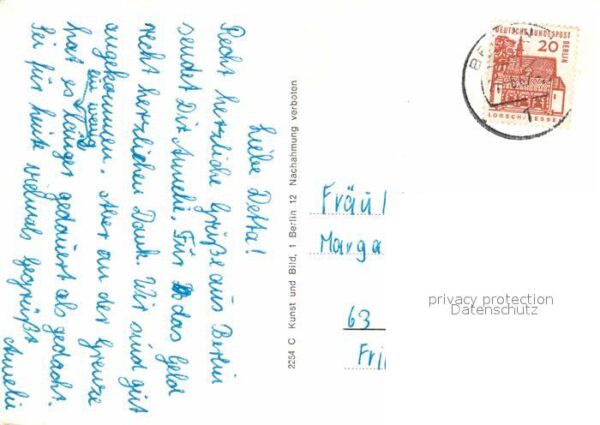 Liebe Detta!
Recht herzliche Grüße aus Berlin
sendet Dir Amelie. Für das Geld
recht herzlichen Dank. Wir sind gut
angekommen. Aber an der Grenze
hat es ein wenig länger gedauert als gedacht.
Sei für heute vielmals gegrüßt
Amelie
2254 C Kunst und Bild, 1 Berlin 12 Nachahmung verboten
DEUTSCHE BUNDESPOST
BERLIN
20
LORSCH/HESSEN
1
Fräul
Marga
63
Fri
privacy protection
Datenschutz